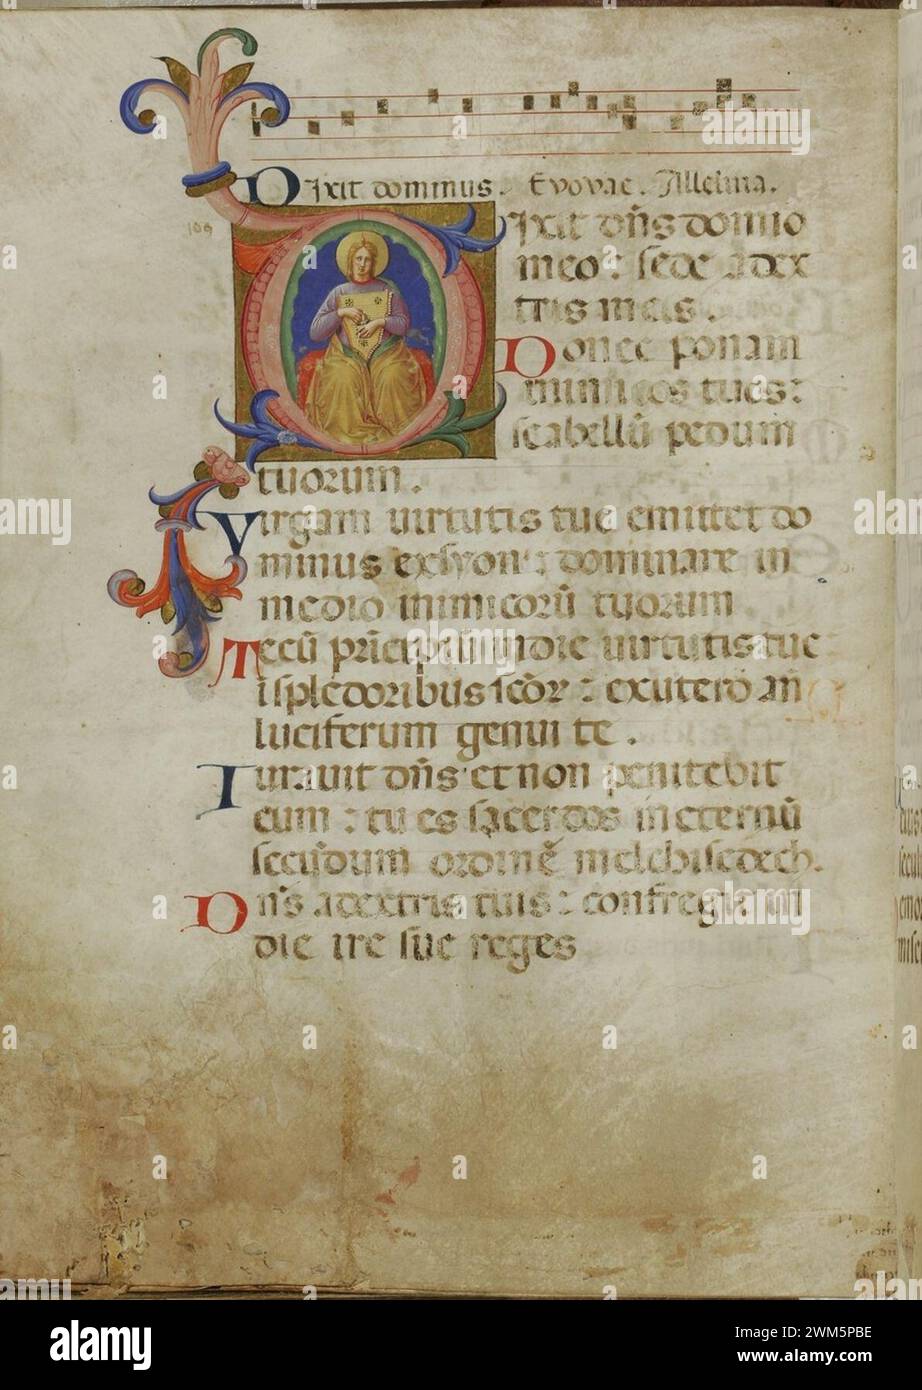 Dixit dominus. Evovae. Alleluia.
109
Dixit dñs domino
meo: sede adex
tris meis.
Donec ponam
inimicos tuos:
scabellũ pedum
tuorum.
Virgam virtutis tue emittet do
minus exsyon: dominare in
medio inimicorũ tuorum
Tecũ prĩcipiũ indie virtutis tue
ĩ splẽdoribus scõr: exutero añ
luciferum genui te.
Iuravit dñs et non penitebit
eum: tu es sacerdos in eternũ
secundum ordinẽ melchisedech.
Dñs adextris tuis: confregit in
die ire sue reges
alamy
Image ID: 2WM5PBE
www.alamy.com